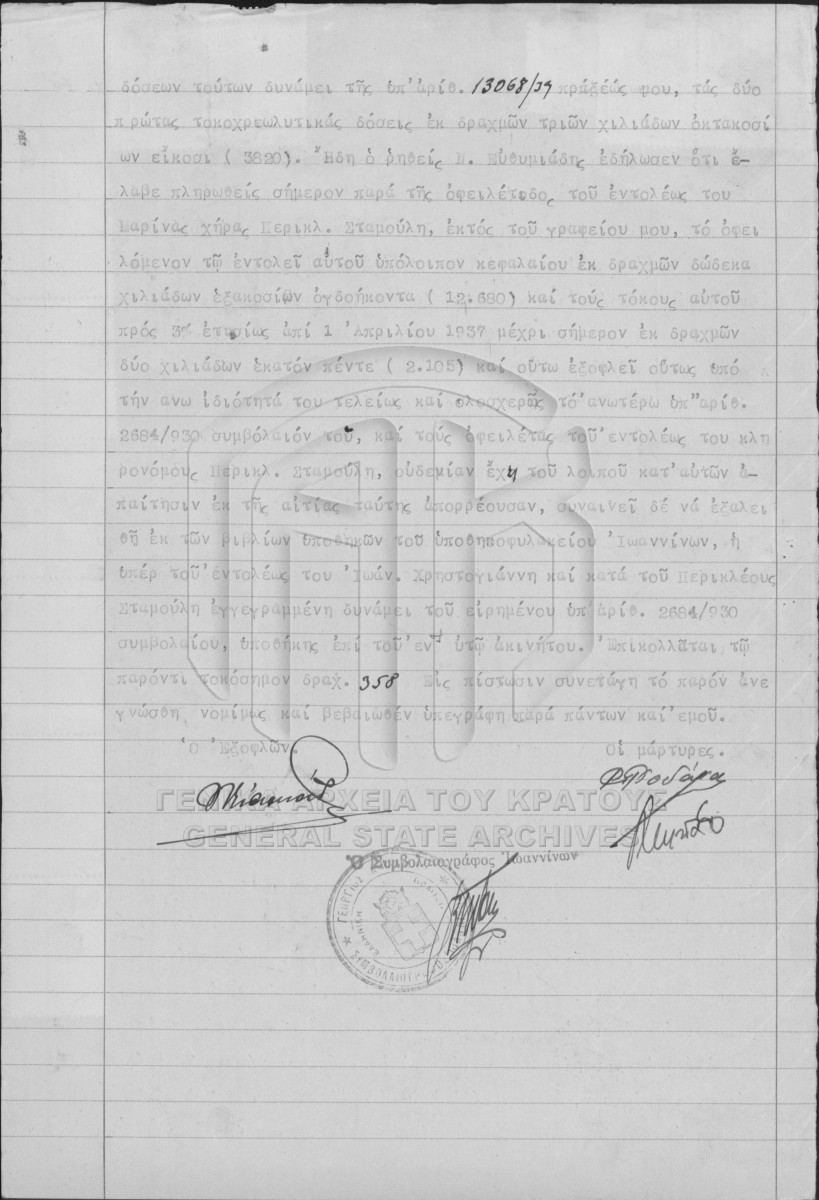 δόσεων τούτων δυνάμει τῆς ὑπ'ἀριθ. 13068/39 πράξεώς μου, τάς δύο
πρώτας τοκοχρεωλυτικάς δόσεις ἐκ δραχμῶν τριῶν χιλιάδων ὀκτακοσί
ων εἴκοσι ( 3820). Ἤδη ὁ ῥηθείς Ν. Εὐθυμιάδης ἐδήλωσεν ὅτι ἔ-
λαβε πληρωθείς σήμερον παρά τῆς ὀφειλέτιδος τοῦ ἐντολέως του
Μαρίνας χήρας Περικλ. Σταμούλη, ἐκτός τοῦ γραφείου μου, τό ὀφει
λόμενον τῷ ἐντολεῖ αὐτοῦ ὑπόλοιπον κεφαλαίου ἐκ δραχμῶν δώδεκα
χιλιάδων ἑξακοσίων ὀγδοήκοντα ( 12.680) καί τούς τόκους αὐτοῦ
πρός 3% ἐτησίως ἀπί 1 'Απριλίου 1937 μέχρι σήμερον ἐκ δραχμῶν
δύο χιλιάδων ἑκατόν πέντε ( 2.105) καί οὕτω ἐξοφλεῖ οὕτως ὑπό
τήν ανω ἰδιότητά του τελείως καί ολοσχερῶς τό'ανωτέρω ὑπ"αριθ.
2684/930 συμβόλαιόν του, καί τούς ὀφειλέτας τοῦ'εντολέως του κλη
ρονόμους Περικλ. Σταμούλη, οὐδεμίαν ἔχη τοῦ λοιποῦ κατ'αὐτῶν ἀ-
παίτησιν ἐκ τῆς αἰτίας ταύτης ἀπορρέουσαν, συναινεῖ δέ νά ἐξαλει
θῆ ἐκ τῶν βιβλίων ὑποθηκῶν τοῦ ὑποθηκοφυλακείου 'Ιωαννίνων, ἡ
ὑπέρ τοῦ'εντολέως του 'Ιωάν. Χρηστογιάννη καί κατά τοῦ Περικλέους
Σταμούλη ἐγγεγραμμένη δυνάμει τοῦ εἰρημένου ὑπ'ἀριθ. 2684/930
συμβολαίου, ὑποθήκης ἐπί τοῦ'εν αὐτῷ ἀκινήτου. 'Επικολλᾶται τῷ
παρόντι τοκόσημον δραχ. 358 Εἰς πίστωσιν συνετάγη τό παρόν ἀνε
γνώσθη νομίμως καί βεβαιωθέν ὑπεγράφη παρά πάντων καί'εμοῦ.
'Ο 'Εξοφλῶν. Οἱ μάρτυρες.
ΓΕΝΙΚΑ ΑΡΧΕΙΑ ΤΟΥ ΚΡΑΤΟΥΣ
GENERAL STATE ARCHIVES
Ὁ Συμβολαιογράφος Ἰωαννίνων
ΓΕΩΡΓΙΟΣ
ΕΛΛΗΝΙΚΗ
ΣΥΜΒΟΛΑΙΟΓΡΑΦΟΣ